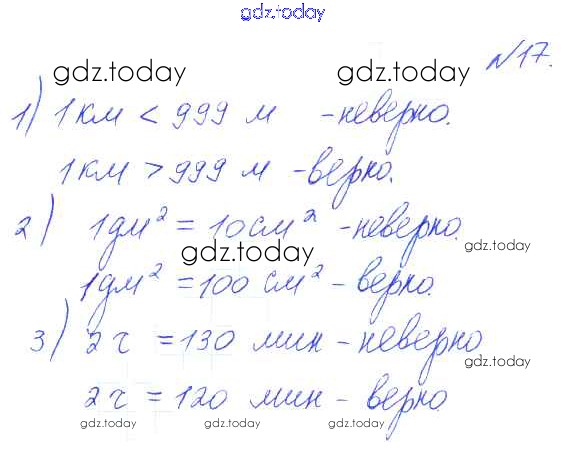 gdz.today
№17.
gdz.today gdz.today
1) 1км < 999 м -неверно.
1км > 999 м -верно.
2) 1дм² = 10см² -неверно.
gdz.today gdz.today
1дм² = 100 см² - верно.
3) 2 ч = 130 мин - неверно
gdz.today
2 ч = 120 мин - верно
gdz.today gdz.today gdz.today